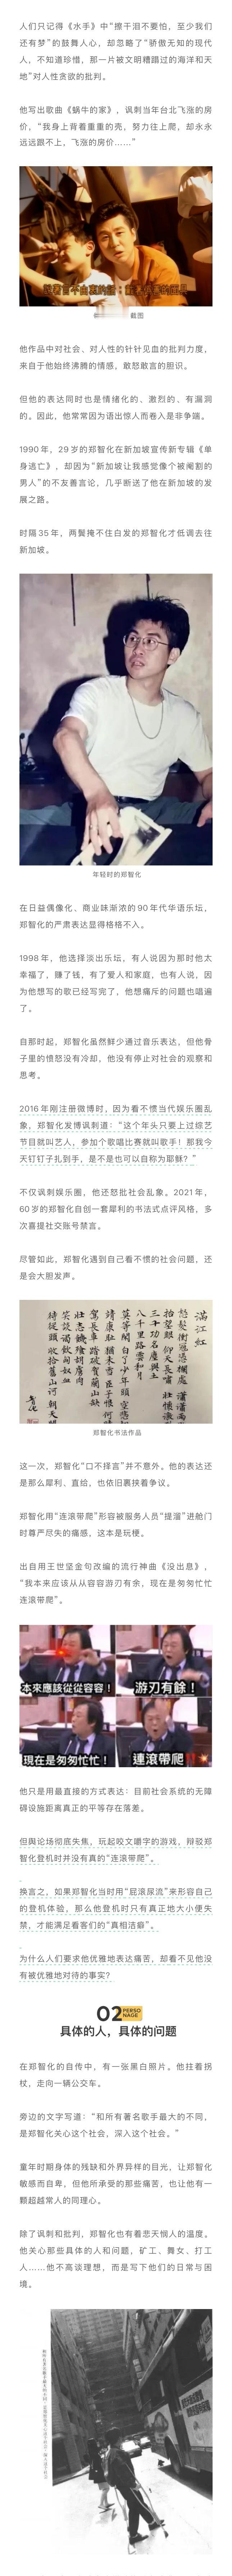 人们只记得《水手》中“擦干泪不要怕，至少我们
还有梦”的鼓舞人心，却忽略了“骄傲无知的现代
人，不知道珍惜，那一片被文明糟蹋过的海洋和天
地”对人性贪欲的批判。
他写出歌曲《蜗牛的家》，讽刺当年台北飞涨的房
价，“我身上背着重重的壳，努力往上爬，却永永
远远跟不上，飞涨的房价……”
截图
他作品中对社会、对人性的针针见血的批判力度，
来自于他始终沸腾的情感，敢怒敢言的胆识。
但他的表达同时也是情绪化的、激烈的、有漏洞
的。因此，他常常因为语出惊人而卷入是非争端。
1990年，29岁的郑智化在新加坡宣传新专辑《单
身逃亡》，却因为“新加坡让我感觉像个被阉割的
男人”的不友善言论，几乎断送了他在新加坡的发
展之路。
时隔35年，两鬓掩不住白发的郑智化才低调去往
新加坡。
年轻时的郑智化
在日益偶像化、商业味渐浓的90年代华语乐坛，
郑智化的严肃表达显得格格不入。
1998年，他选择淡出乐坛，有人说因为那时他太
幸福了，赚了钱，有了爱人和家庭，也有人说，因
为他想写的歌已经写完了，他想痛斥的问题也唱遍
了。
自那时起，郑智化虽然鲜少通过音乐表达，但他骨
子里的愤怒没有冷却，他没有停止对社会的观察和
思考。
2016年刚注册微博时，因为看不惯当代娱乐圈乱
象，郑智化发博讽刺道：“这个年头只要上过综艺
节目就叫艺人，参加个歌唱比赛就叫歌手！那我今
天钉钉子扎到手，是不是也可以自称为耶稣？”
不仅讽刺娱乐圈，他还怒批社会乱象。2021年，
60岁的郑智化自创一套犀利的书法式点评风格，多
次喜提社交账号禁言。
尽管如此，郑智化遇到自己看不惯的社会问题，还
是会大胆发声。
满江红
怒髮衝冠憑欄處瀟瀟雨歇
抬望眼仰天長嘯壯懷激烈
三十功名塵與土
八千里路雲和月
莫等閒白了少年頭空悲切
靖康恥猶未雪臣子恨何時滅
駕長車踏破賀蘭山缺
壯志飢餐胡虜肉
笑談渴飲匈奴血
待從頭收拾舊山河朝天闕
郑智化书法作品
这一次，郑智化“口不择言”并不意外。他的表达还
是那么犀利、直给，也依旧裹挟着争议。
郑智化用“连滚带爬”形容被服务人员“提溜”进舱门
时尊严尽失的痛感，这本是玩梗。
出自用王世坚金句改编的流行神曲《没出息》，
“我本来应该从从容容游刃有余，现在是匆匆忙忙
连滚带爬”。
本來應該從從容容！
游刃有餘！
現在是匆匆忙忙！
連滾帶爬！！
他只是用最直接的方式表达：目前社会系统的无障
碍设施距离真正的平等存在落差。
但舆论场彻底失焦，玩起咬文嚼字的游戏，辩驳郑
智化登机时并没有真的“连滚带爬”。
换言之，如果郑智化当时用“屁滚尿流”来形容自己
的登机体验，那么他登机时只有真正地大小便失
禁，才能满足看客们的“真相洁癖”。
为什么人们要求他优雅地表达痛苦，却看不见他没
有被优雅地对待的事实？
02 PERSO
NAGE
具体的人，具体的问题
在郑智化的自传中，有一张黑白照片。他拄着拐
杖，走向一辆公交车。
旁边的文字写道：“和所有著名歌手最大的不同，
是郑智化关心这个社会，深入这个社会。”
童年时期身体的残缺和外界异样的目光，让郑智化
敏感而自卑，但他所承受的那些痛苦，也让他有一
颗超越常人的同理心。
除了讽刺和批判，郑智化也有着悲天悯人的温度。
他关心那些具体的人和问题，矿工、舞女、打工
人……他不高谈理想，而是写下他们的日常与困
境。